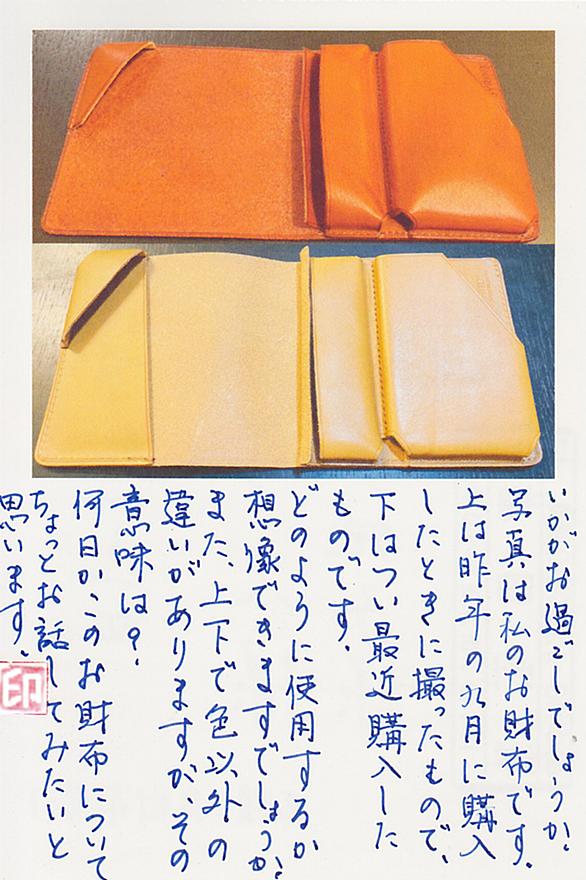 いかがお過ごしでしょうか?
写真は私のお財布です。
上は昨年の九月に購入
したときに撮ったもので、
下はつい最近購入した
ものです。
どのように使用するか
想像できますでしょうか?
また、上下で色以外の
違いがありますが、その
意味は?
何日か、このお財布について
ちょっとお話してみたいと
思います。
印